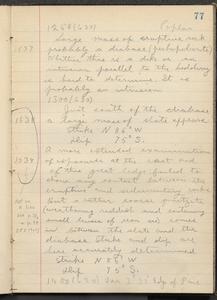 77
1258 (630) Poplar
Large mass of eruptive rock
1037 probably a diabase
Whither this is a dike or an
intrusion parallel to the bedding
is hard to determine. It is
probably an intrusion
1300 (630)
Just south of the diabase
1038 a large mass of slate appears
Strike N 86° W
dip 75° S.
A more extended examination
1039 of exposures at the east end
of this great ledge failed to
show any contact between the
eruptive and sedimentary rocks
But a rather coarse
(weathering reddish and containing
small lenses of iron ore comes
in between the slate and the
diabase Strike and dip are
here accurately determined
Strike N 88° W
Dip 75° S.
1400 (630)